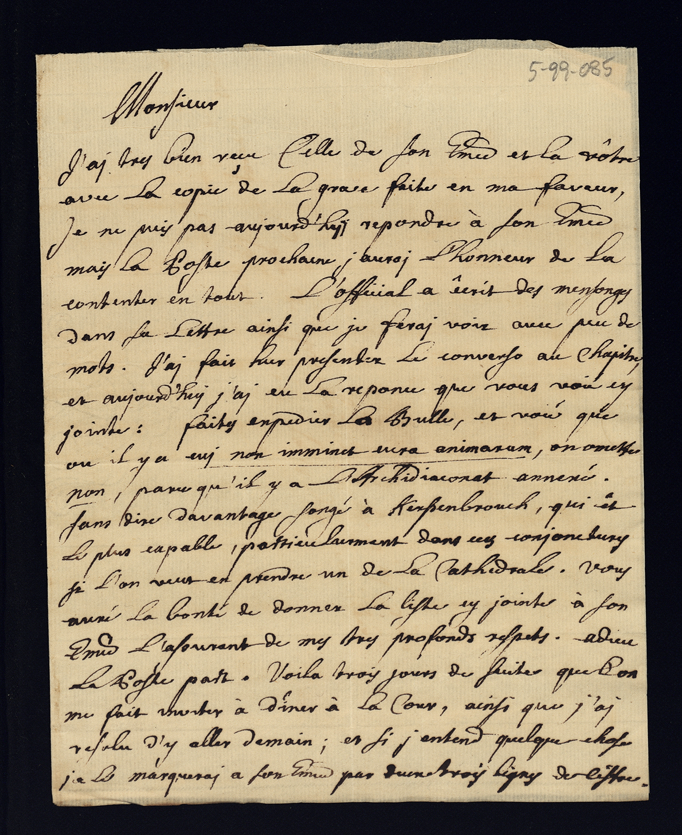 5-99-085
Monsieur
J'aj tres bien reçu Celle de son Emce et la vôtre
avec La copie de La grace faite en ma faveur,
Je ne puis pas aujourd'huj repondre à son Emce
mais La Poste prochaine j'auraj L'honneur de La
contenter en tout. L'official a êcrit des mensonges
dans sa Lettre ainsi que je feraj voir avec peu de
mots. J'aj fait hier presenter Le converso au Chapitre,
et aujourd'huj j'aj eu La reponce que vous voié cy
jointe: faites enpedier La Bulle, et voié que
ou il y a cuj non imminet cura animarum, on omette
non, parce qu'il y a L'Archidiaconat annexé.
sans dire davantage songé à Kerssenbrouch, qui êt
Le plus capable, particulierment dans ces conjonctures
si L'on veut en prendre un de La Cathedrale. Vous
auré la bonté de donner La liste cy jointe à son
Emce L'assurant de mes tres profonds respets. adieu
La Poste part. Voila trois jours de suites que L'on
me fait inviter à dîner à La Cour, ainsi que j'aj
resolu d'y aller demain; et si j'entend quelque chose
je Le marqueraj a son Emce par trois lignes de Lettre.